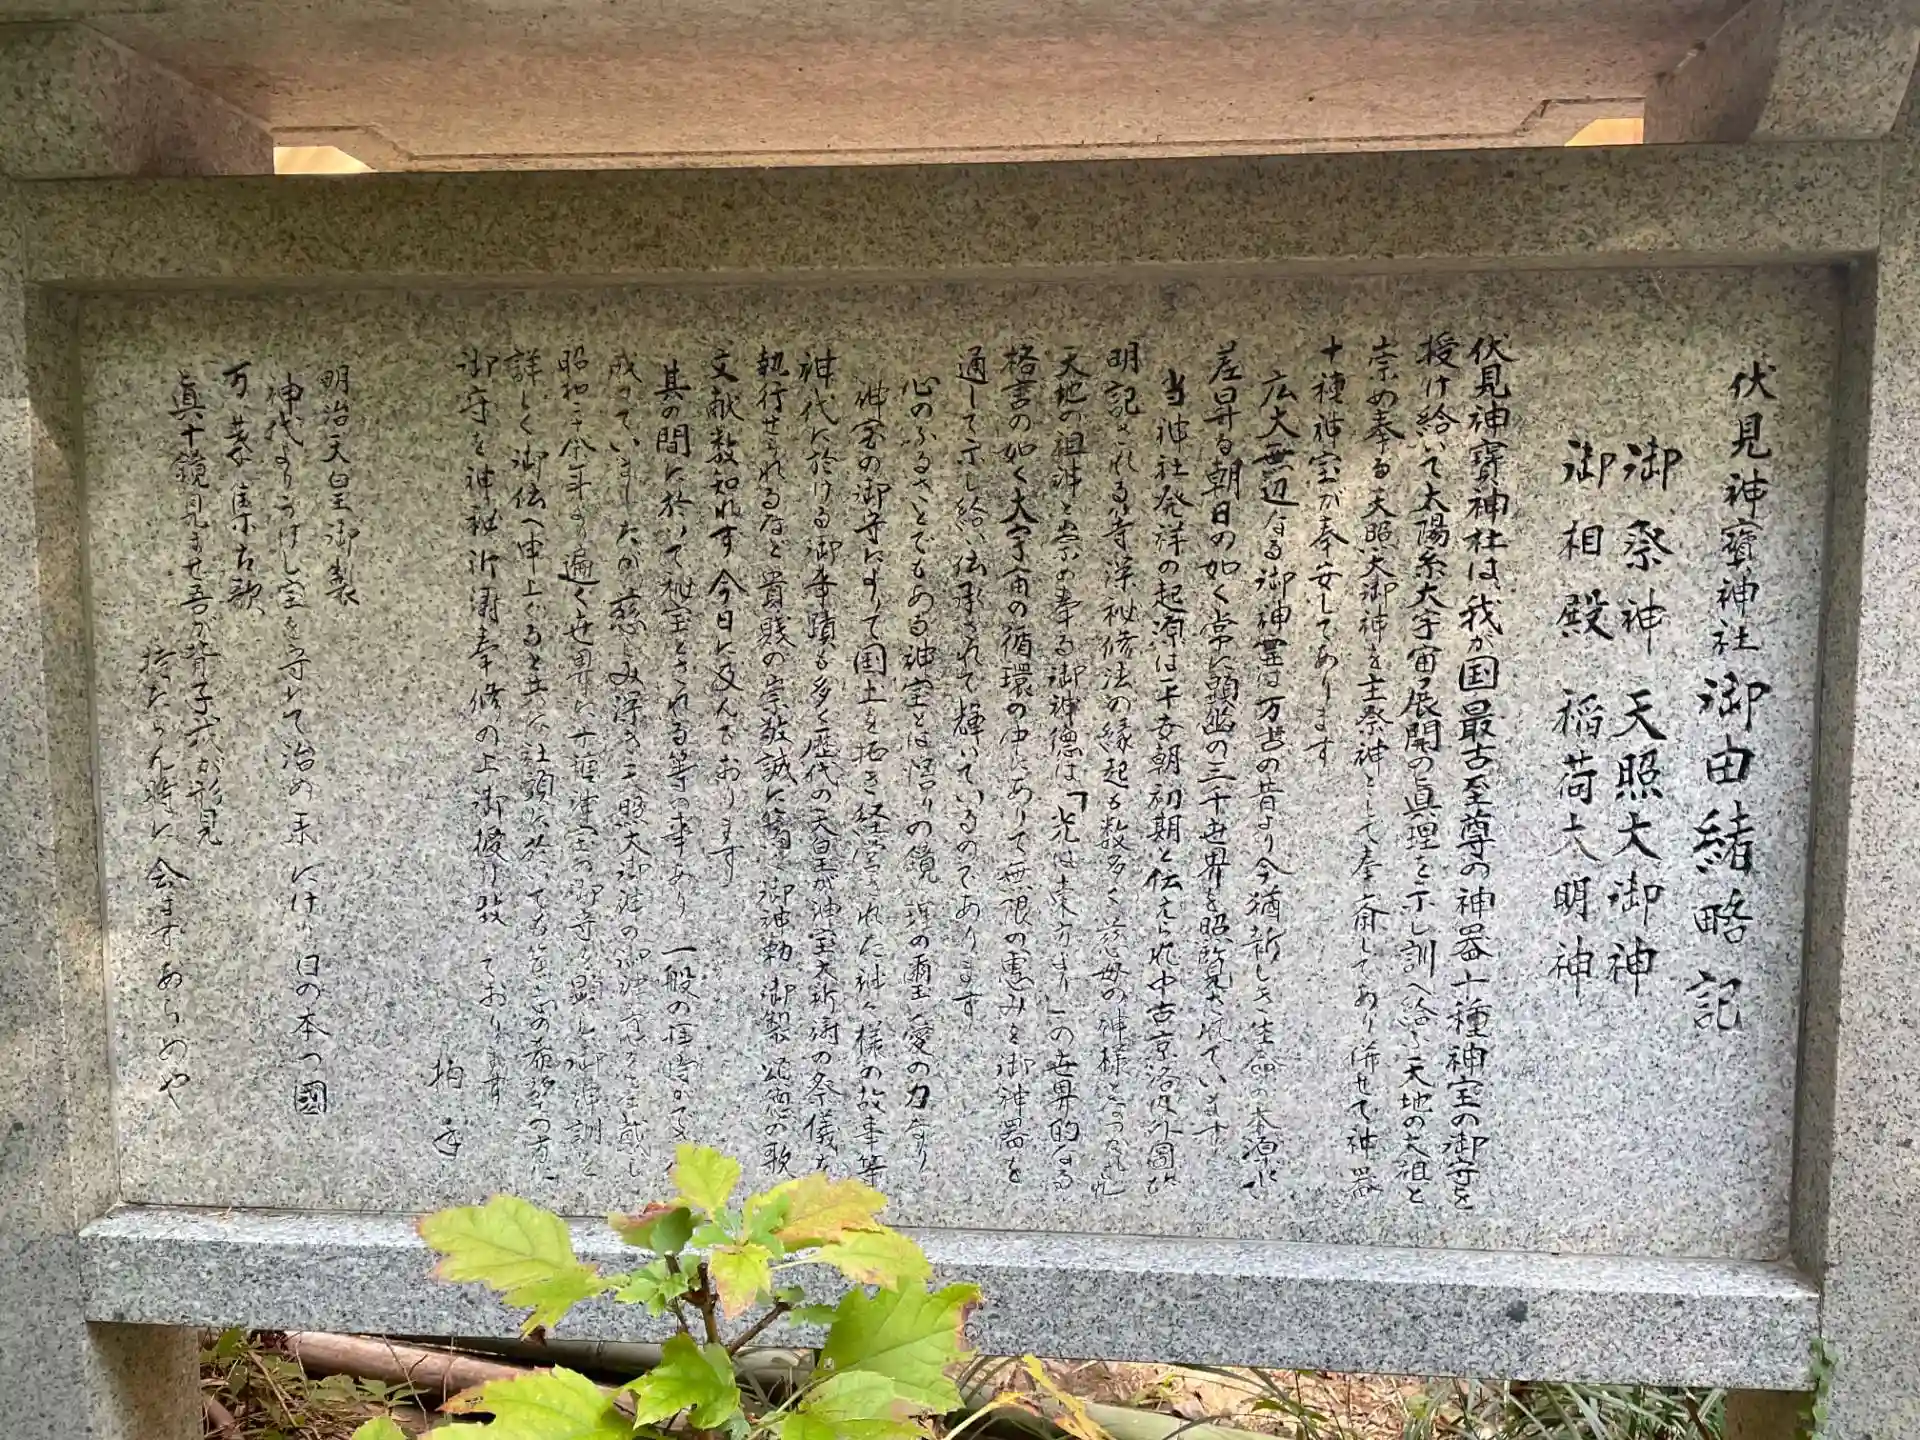 伏見神寶神社御由緒略記
御祭神 天照大御神
御相殿 稲荷大明神
伏見神寶神社は我が国最古至尊の神器十種神宝の御守を
授け給いて太陽系大宇宙展開の眞理を示し訓へ給う天地の大祖と
崇め奉る天照大御神を主祭神として奉斎してあり併せて神器
十種神宝が奉安してあります
広大無辺なる御神霊は万古の昔より今猶新しき生命の本源
差昇る朝日の如く常に顕幽の三千世界を昭覧されています
当神社発祥の起源は平安朝初期と伝えられ中古京洛内外図
明記される等深秘修法の縁起も数多く慈母の神様と
天地の祖神と崇め奉る御神徳は「光は東方より」の世界的なる
格言の如く大宇宙の循環の中にありて無限の恵みを御神器を
通して示し給い伝承されて輝いているのであります
心のふるさとでもある神宝とは悟りの鏡 理の璽 愛の力なり
神宝の御守によりて国土を拓き経営された神々様の故事等
神代に於ける御事蹟も多く歴代の天皇が神宝大祈祷の祭儀を
執行せられるなど貴賤の崇敬誠に篤く御神勅 御製 の歌
文献数知れず今日に及んでおります
其の間に於いて秘宝とされる等の事あり 一般の
成っていましたが慈しみ深き天照大御神の
昭和二十余年より遍く世界に十種神宝の御守を顕し御神訓を
詳しく御伝へ申上ぐると共に社頭に於いても の希望の方に
御守を神秘祈祷奉修の上御授け致しております
柏手
明治天皇御製
神代よりうけし宝を守りて治め来にけり日の本つ國
万葉集古歌
眞十鏡見ませ吾が背子我が形見
持たらん時に会はずあらめや